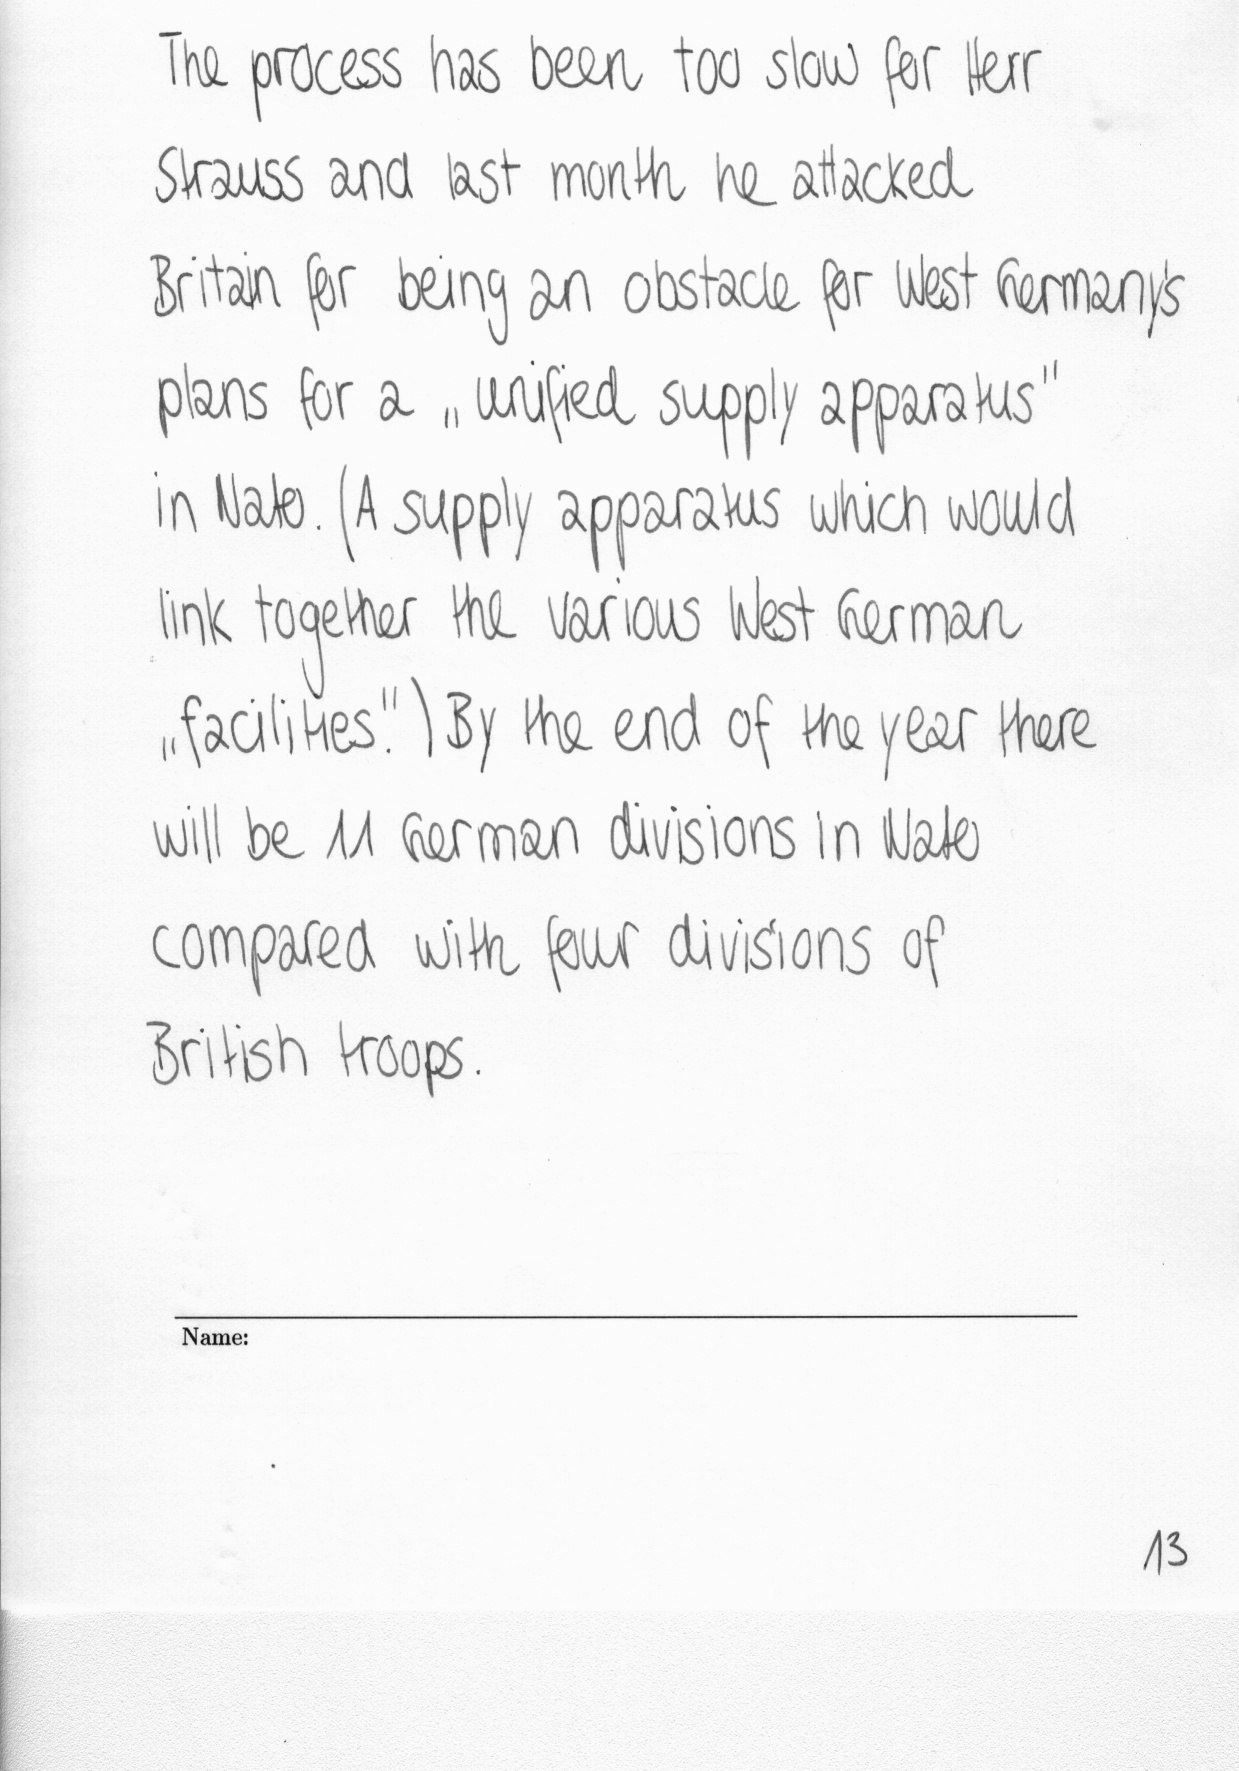 The process has been too slow for Herr
Strauss and last month he attacked
Britain for being an obstacle for West Germany's
plans for a „unified supply apparatus"
in Nato. (A supply apparatus which would
link together the various West German
„facilities.") By the end of the year there
will be 11 German divisions in Nato
compared with four divisions of
British troops.
Name:
13